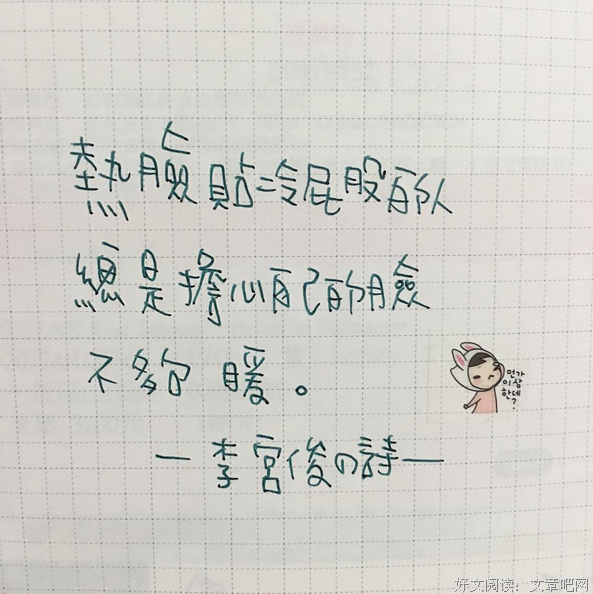 熱臉貼冷屁股的人
總是擔心自己的臉
不夠 暖。
먼가
이상
한데
?
一 李宮俊の詩 一
好文阅读:文章吧网